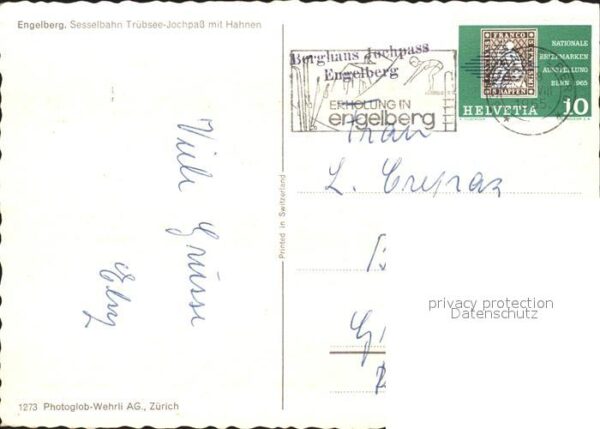 Engelberg. Sesselbahn Trübsee-Jochpaß mit Hahnen
Viele Grüsse
1273 Photoglob-Wehrli AG., Zürich
Printed in Switzerland
Berghaus Jochpass
Engelberg
ERHOLUNG IN
engelberg
FRANCO
RAPPEN
NATIONALE
BRIEFMARKEN
AUSSTELLUNG
BERN 1965
HELVETIA 10
Frau
L.
privacy protection
Datenschutz